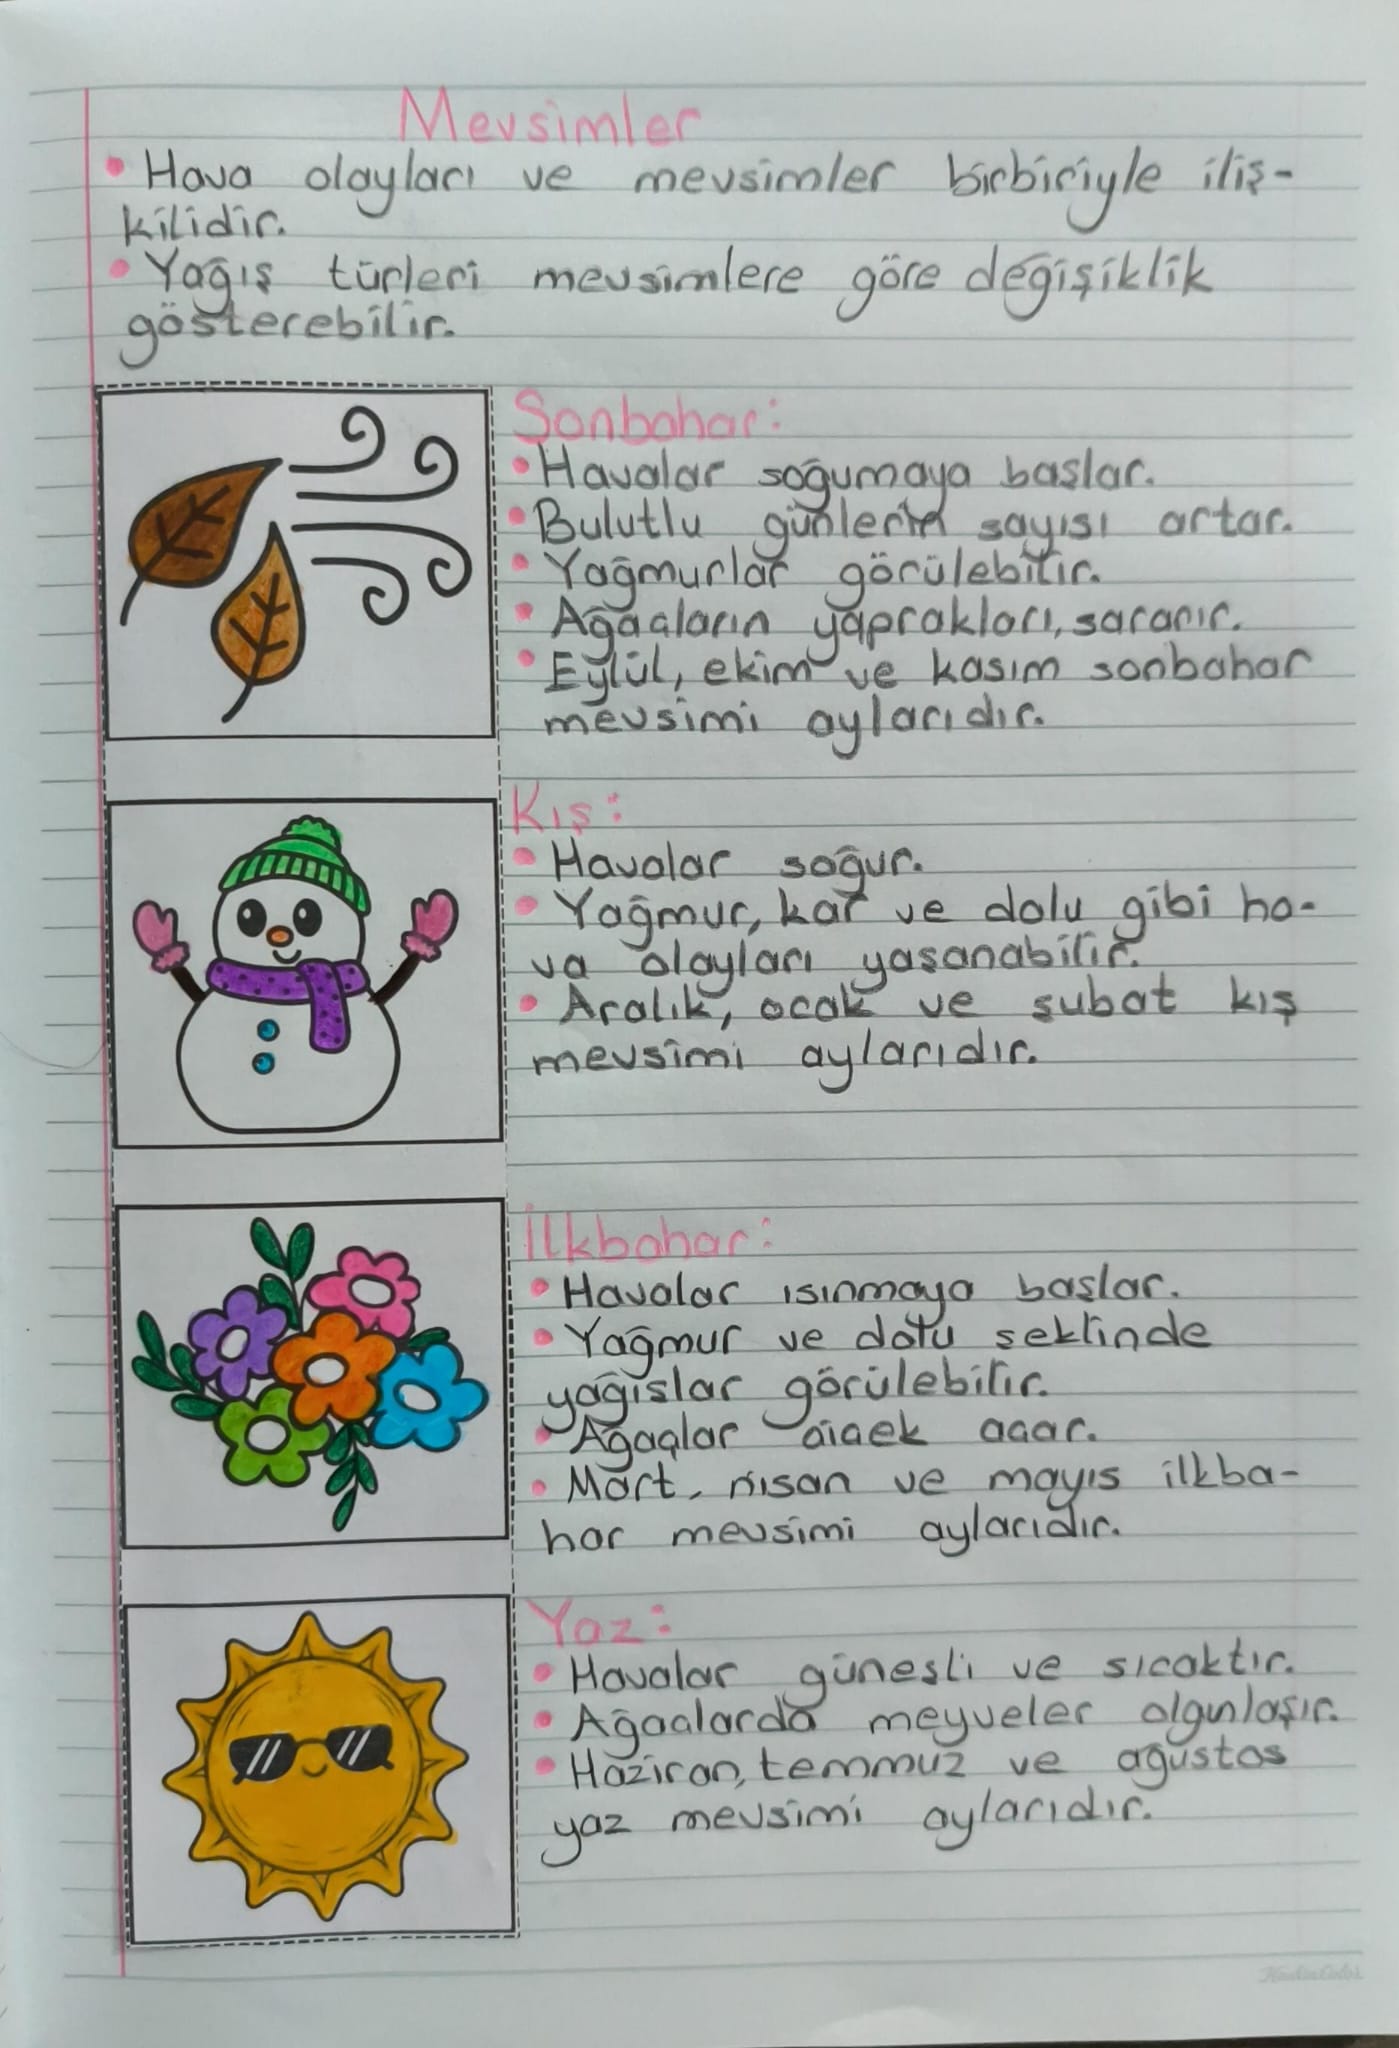 Mevsimler
• Hava olayları ve mevsimler birbiriyle iliş-
kilidir.
• Yağış türleri mevsimlere göre değişiklik
gösterebilir.
Sonbahar:
• Havalar soğumaya başlar.
• Bulutlu günlerin sayısı artar.
• Yağmurlar görülebilir.
• Ağaçların yaprakları, sararır.
• Eylül, ekim ve kasım sonbahar
mevsimi aylarıdır.
Kış:
• Havalar soğur.
• Yağmur, kar ve dolu gibi ha-
va olayları yaşanabilir.
• Aralık, ocak ve şubat kış
mevsimi aylarıdır.
İlkbahar:
• Havalar ısınmaya başlar.
• Yağmur ve dolu şeklinde
yağışlar görülebilir.
• Ağaçlar çiçek açar.
• Mart, nisan ve mayıs ilkba-
har mevsimi aylarıdır.
Yaz:
• Havalar güneşli ve sıcaktır.
• Ağaçlarda meyveler olgunlaşır.
• Haziran, temmuz ve ağustos
yaz mevsimi aylarıdır.